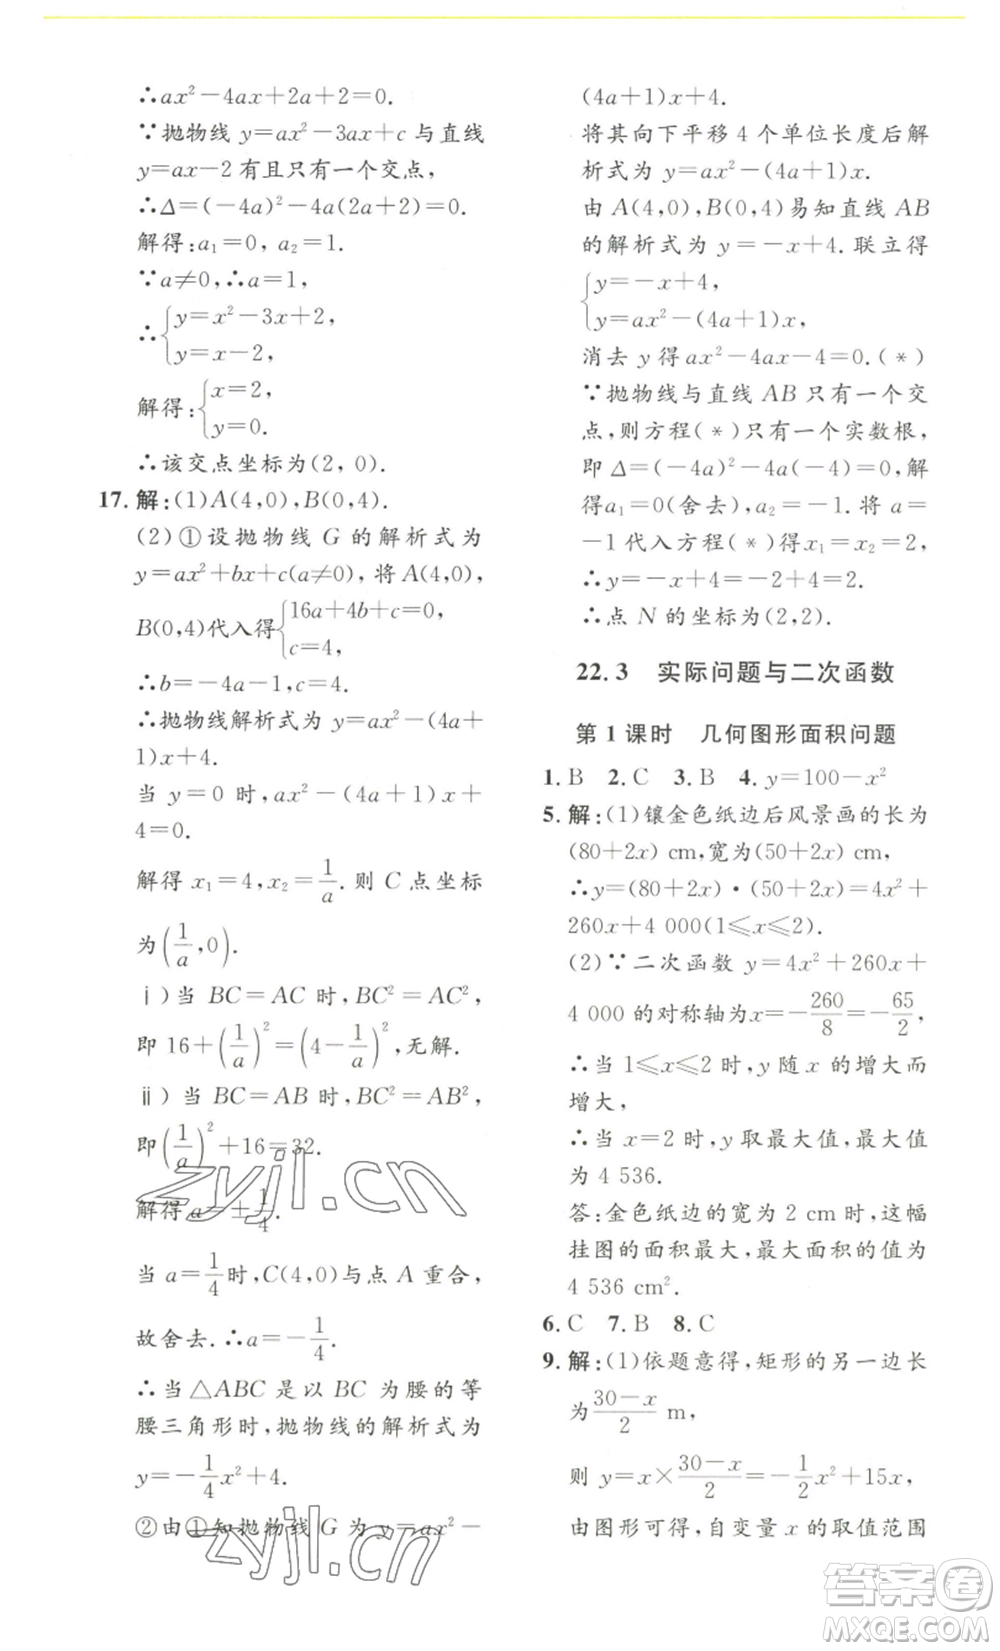 ∴ax²－4ax＋2a＋2＝0.
∵抛物线 y＝ax²－3ax＋c 与直线
y＝ax－2 有且只有一个交点，
∴Δ＝(－4a)²－4a(2a＋2)＝0.
解得：a₁＝0，a₂＝1.
∵a≠0，∴a＝1，
∴{y＝x²－3x＋2，
y＝x－2，
解得：{x＝2，
y＝0.
∴该交点坐标为(2，0).
17. 解：(1)A(4，0)，B(0，4).
(2)①设抛物线 G 的解析式为
y＝ax²＋bx＋c(a≠0)，将 A(4，0)，
B(0，4)代入得{16a＋4b＋c＝0，
c＝4，
∴b＝－4a－1，c＝4.
∴抛物线解析式为 y＝ax²－(4a＋
1)x＋4.
当 y＝0 时，ax²－(4a＋1)x＋
4＝0.
解得 x₁＝4，x₂＝1/a. 则 C 点坐标
为(1/a，0).
ⅰ)当 BC＝AC 时，BC²＝AC²，
即 16＋(1/a)²＝(4－1/a)²，无解.
ⅱ)当 BC＝AB 时，BC²＝AB²，
即(1/a)²＋16＝32.
解得 a＝±1/4.
当 a＝1/4时，C(4，0)与点 A 重合，
故舍去. ∴a＝－1/4.
∴当 △ABC 是以 BC 为腰的等
腰三角形时，抛物线的解析式为
y＝－1/4x²＋4.
②由①知抛物线 G 为 y＝ax²－
(4a＋1)x＋4.
将其向下平移 4 个单位长度后解
析式为 y＝ax²－(4a＋1)x.
由 A(4，0)，B(0，4)易知直线 AB
的解析式为 y＝－x＋4. 联立得
{y＝－x＋4，
y＝ax²－(4a＋1)x，
消去 y 得 ax²－4ax－4＝0.(＊)
∵抛物线与直线 AB 只有一个交
点，则方程(＊)只有一个实数根，
即 Δ＝(－4a)²－4a(－4)＝0. 解
得 a₁＝0(舍去)，a₂＝－1. 将 a＝
－1 代入方程(＊)得 x₁＝x₂＝2，
∴y＝－x＋4＝－2＋4＝2.
∴点 N 的坐标为(2，2).
22.3 实际问题与二次函数
第 1 课时 几何图形面积问题
1. B 2. C 3. B 4. y＝100－x²
5. 解：(1)镶金色纸边后风景画的长为
(80＋2x) cm，宽为(50＋2x) cm，
∴y＝(80＋2x)·(50＋2x)＝4x²＋
260x＋4 000(1≤x≤2).
(2)∵二次函数 y＝4x²＋260x＋
4 000 的对称轴为 x＝－260/8＝－65/2，
∴当 1≤x≤2 时，y 随 x 的增大而
增大，
∴当 x＝2 时，y 取最大值，最大值
为 4 536.
答：金色纸边的宽为 2 cm 时，这幅
挂图的面积最大，最大面积的值为
4 536 cm².
6. C 7. B 8. C
9. 解：(1)依题意得，矩形的另一边长
为(30－x)/2 m，
则 y＝x×(30－x)/2＝－1/2x²＋15x，
由图形可得，自变量 x 的取值范围
zyjl.cn
zyjl.cn
答案圈
MXQE.COM